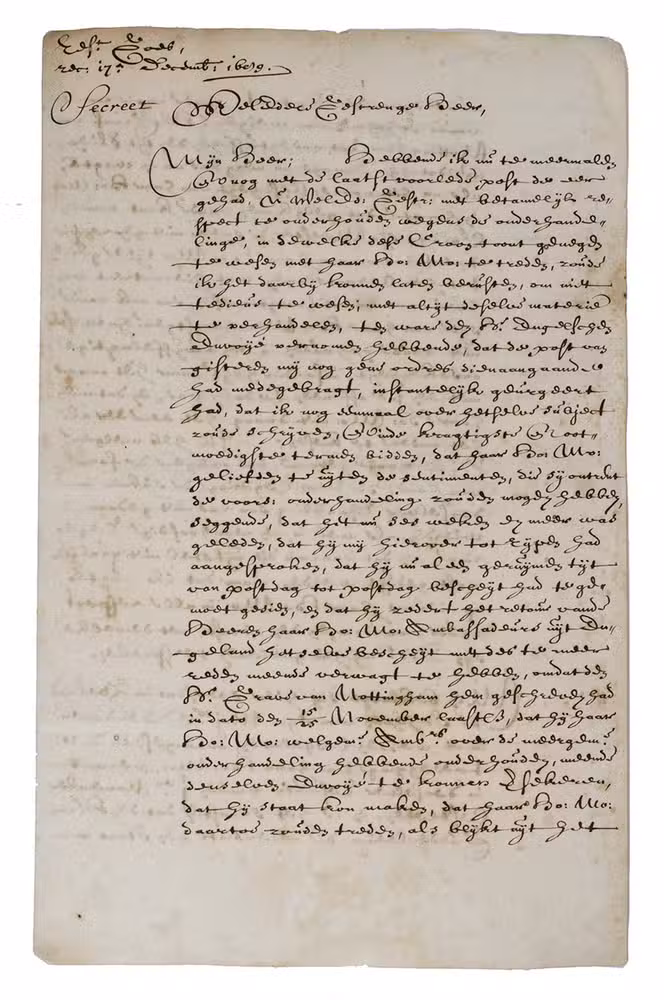 rec: 17: Decemb: 1689.
Secreet Wel Eedele Gestrenge Heer,
Mijn Heer; Hebbende ik nu te meermalen
En nog met de laatst voorlede post de eer
gehad, U WelEd: Gestr: met betamelijk re-
spect te onderhouden wegens de onderhande-
linge, in dewelke dese Croon toont genegen
te wesen met haar Ho: Mo: te treden, zoude
ik het daarby konnen laten berusten, om niet
tedieus te wesen, met altyt deselve materie
te verhandelen, ten ware den Hr. Engelschen
Envoyé vernomen hebbende, dat de post van
gisteren my nog gene ordres dienaangaande
had medegebragt, instantelyk geurgeert
had, dat ik nog eenmaal over hetselve subject
zoude schryven, En inde kragtigste En oot-
moedigste termen bidden, dat haar Ho: Mo:
geliefden te uyten de sentimenten, die sy ontrent
de voors: onderhandeling zouden mogen hebben,
seggende, dat het nu ses weken en meer was
geleden, dat hy my hierover tot Rypen had
aangesproken, dat hy nu al een geruymen tyt
van postdag tot postdag bescheyt had te ge-
moet gesien, en dat hy zedert het retour vande
Heeren haar Ho: Mo: Ambassadeurs uyt En-
geland hetselve bescheyt met des te meer
reden meende verwagt te hebben, omdat den
Hr. Grave van Nottingham hem geschreven had
in dato den 15/25 November laatstl., dat hy haar
Ho: Mo: welgem: Amb.rs over de meergem:
onderhandeling hebbende onderhouden, meende
denselven Envoyé te konnen verzekeren,
dat hy staat kon maken, dat haar Ho: Mo:
daartoe zouden treden, als blykt uyt het